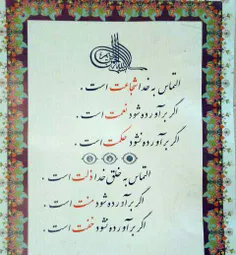 التماس به خدا شجاعت است.
اگر برآورده شود نعمت است.
اگر برآورده نشود حکمت است.
التماس به خلق خدا ذلت است.
اگر برآورده شود منت است.
اگر برآورده نشود خفت است.